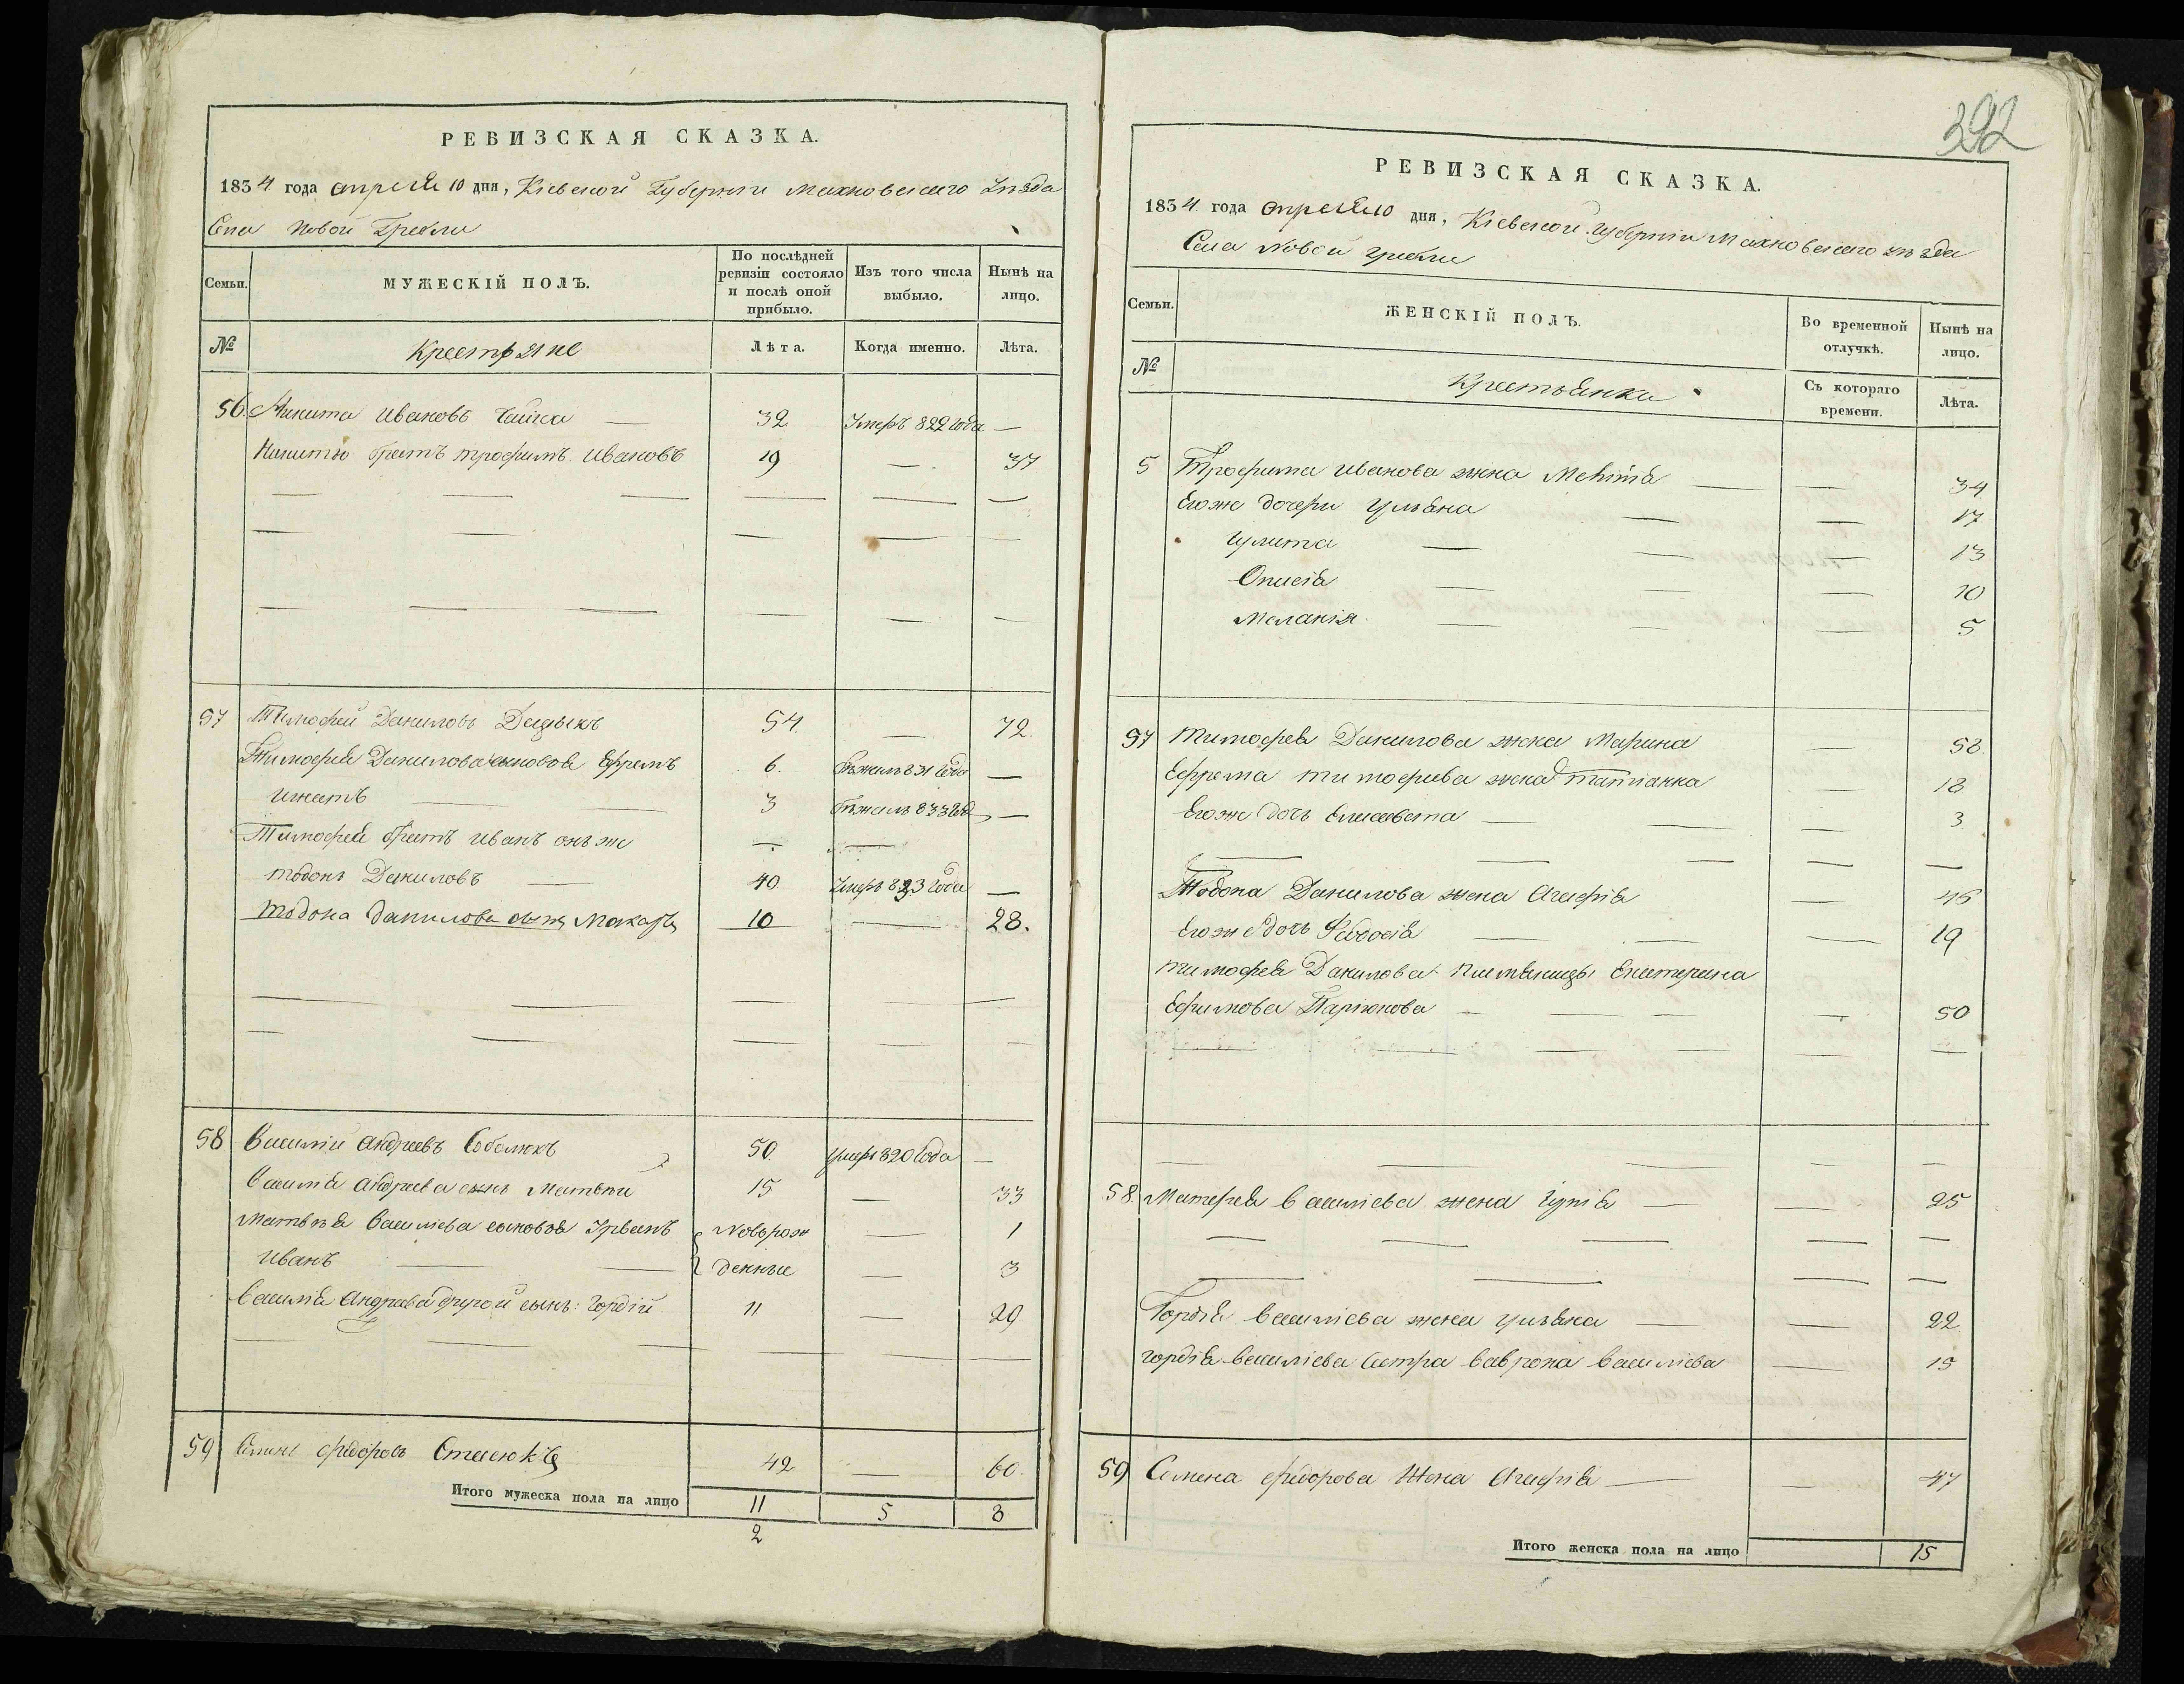 РЕВИЗСКАЯ СКАЗКА.
1834 года апреля 10 дня, Кіевской Губерніи Махновскаго Уезда
Села Новой Гребли
Семьи. МУЖЕСКІЙ ПОЛЪ. По послѣдней ревизіи состояло и послѣ оной прибыло. Изъ того числа выбыло. Нынѣ на лицо.
№ Крестьяне Лѣта. Когда именно. Лѣта.
56 Никита Ивановъ Чайка — 32 Умеръ 822 года —
Никиты братъ Трофимъ Ивановъ 19 — 37
57 Тимофей Даниловъ 54 — 72
Тимофея Данилова сыновья Ефремъ 6. Бѣжалъ 831 года —
Игнатъ 3 Бѣжалъ 833 года —
Тимофея братъ Иванъ онъ же — —
Тодонъ Даниловъ — 40 Умеръ 823 года —
Тодона Данилова сынъ Макаръ 10 — 28.
58 Василій Андреевъ Соболюкъ 50 умеръ 820 года —
Василія Андреева сынъ Матвей 15 — 33
Матвея Василіева сыновья Урванъ Новорож — 1
Иванъ — — денные — 3
Василія Андреева другой сынъ: Гордій 11 — 29
59 Семенъ Федоровъ Стасюкъ 42 — 60.
Итого мужеска пола на лицо 11 5 8
2
292
РЕВИЗСКАЯ СКАЗКА.
1834 года апреля 10 дня, Кіевской Губерніи Махновскаго уезда
Села Новой Гребли
Семьи. ЖЕНСКІЙ ПОЛЪ. Во временной отлучкѣ. Нынѣ на лицо.
№ Крестьянки Съ котораго времени. Лѣта.
5 Трофима Иванова жена — — 34
Егоже дочери Ульяна — — 17
Улита — — — 13
Описія — — — 10
Меланія — — — 5
57 Тимофея Данилова жена Марина — 58.
Ефрема Тимофеива жена Татіанна — 18
Егоже дочь Елисавета — — — 3
Тодона Данилова жена Агафія — 46
Егоже дочь Феодосія — — — 19
Тимофея Данилова племяница Екатерина
Ефимова — — — — 50
58. Матефея Василіева жена — — 25
Гордія Василіева жена Ульяна — — 22
Гордія Василіева сестраВаврона Василіева — 15
59 Семена Федорова жена Агафія — — 47
Итого женска пола на лицо 15